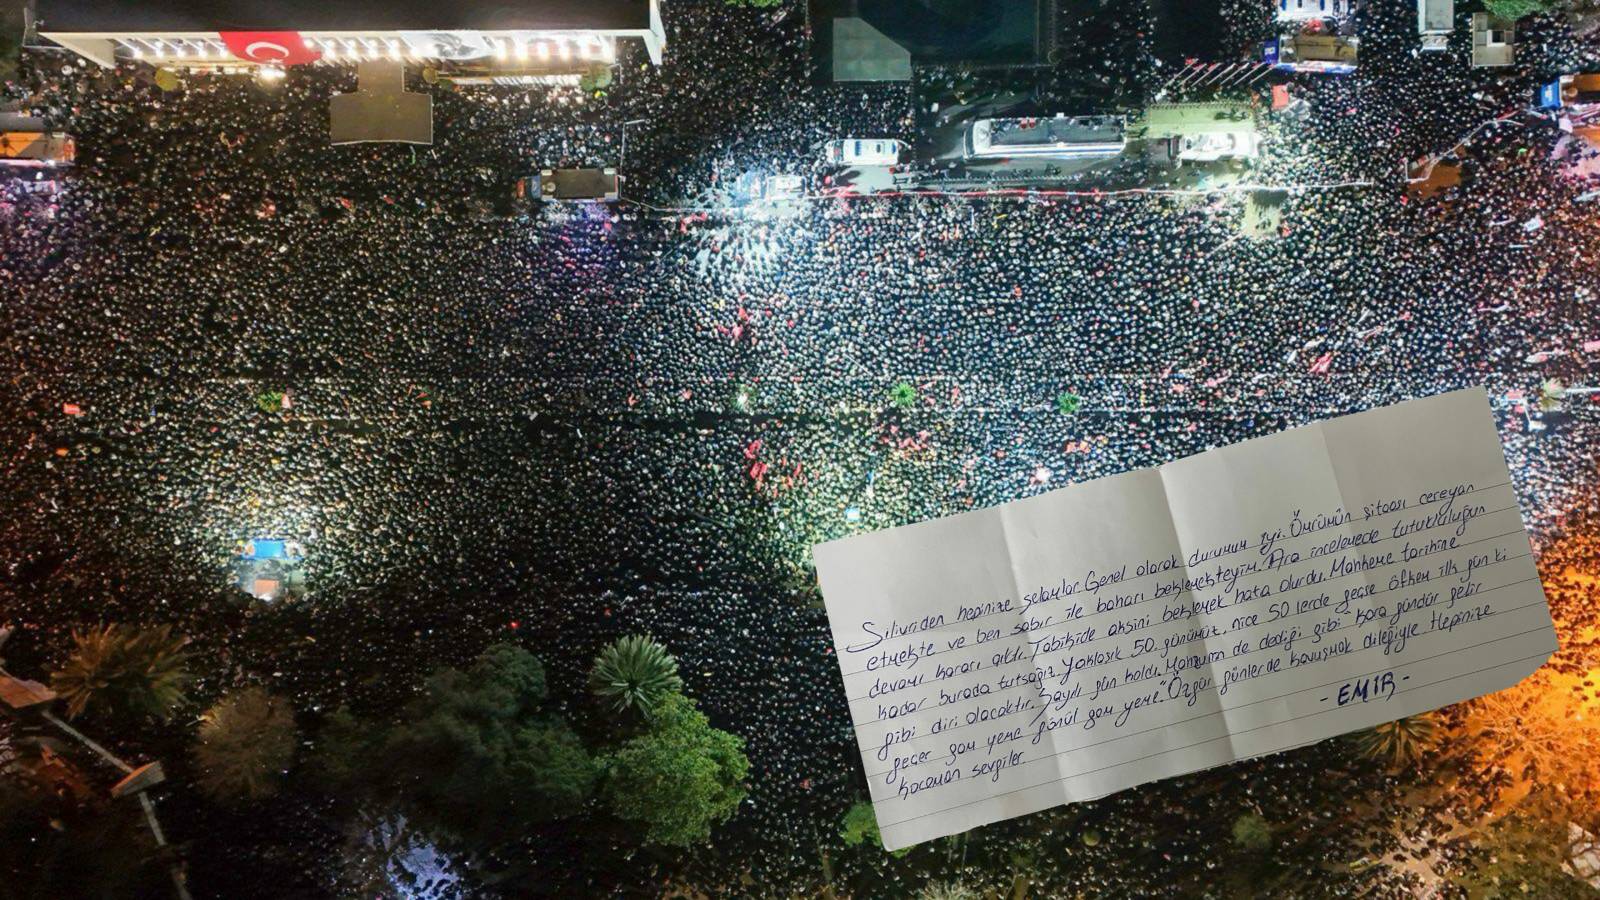 Silivriden hepinize selamlar. Genel olarak durumum iyi. Ömrümün şitası cereyan
etmekte ve ben sabır ile baharı beklemekteyim. Ara incelemede tutukluluğun
devamı kararı çıktı. Tabikide aksini beklemek hata olurdu. Mahkeme tarihine
kadar burada tutsağız. Yaklaşık 50. günümüz, nice 50 lerde geçse öfkem ilk gün ki
gibi diri olacaktır. Sayılı gün kaldı. Mahzuni de dediği gibi "kara gündür gelir
geçer gam yeme gönül gam yeme." Özgür günlerde kavuşmak dileğiyle. Hepinize
kocaman sevgiler.
- EMİR -